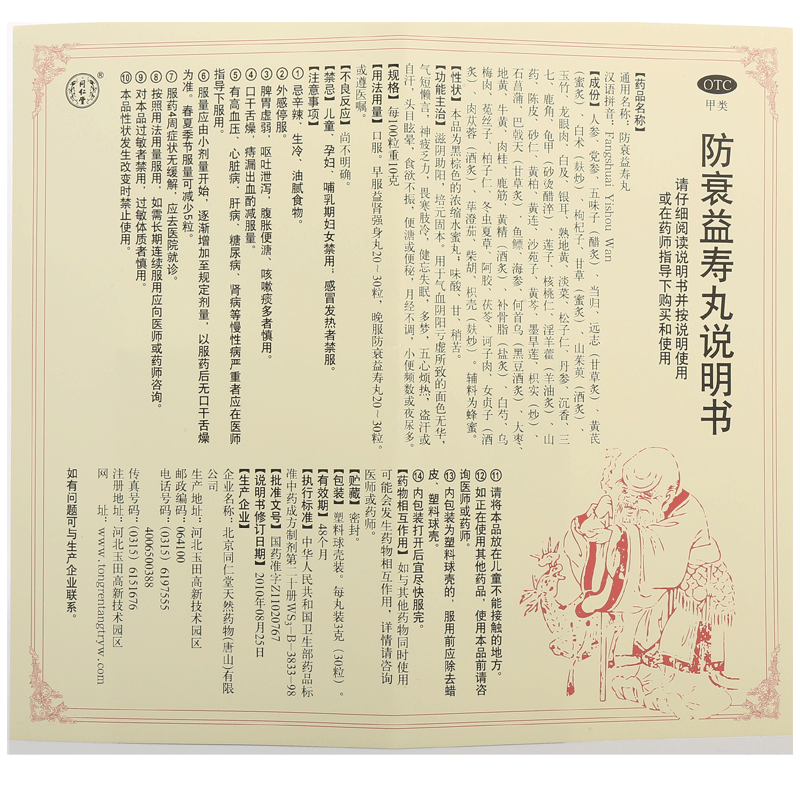 OTC
甲类
防衰益寿丸说明书
请仔细阅读说明书并按说明使用
或在药师指导下购买和使用
【药品名称】
通用名称：防衰益寿丸
汉语拼音：Fangshuai Yishou Wan
【成份】人参、党参、五味子（醋炙）、当归、远志（甘草炙）、黄芪
（蜜炙）、白术（麸炒）、枸杞子、甘草（蜜炙）、山茱萸（酒炙）、
玉竹、龙眼肉、白及、银耳、熟地黄、淡菜、松子仁、丹参、沉香、三
七、鹿角、龟甲（砂烫醋淬）、莲子、核桃仁、淫羊藿（羊油炙）、山
药、陈皮、砂仁、黄柏、黄连、沙苑子、黄芩、墨旱莲、枳实（炒）、
石菖蒲、巴戟天（甘草炙）、鱼鳔、海参、何首乌（黑豆酒炙）、大枣、
地黄、牛黄、肉桂、鹿筋、黄精（酒炙）、补骨脂（盐炙）、白芍、乌
梅肉、菟丝子、柏子仁、冬虫夏草、阿胶、茯苓、诃子肉、女贞子（酒
炙）、肉苁蓉（酒炙）、荜澄茄、柴胡、枳壳（麸炒）。辅料为蜂蜜。
【性状】本品为黑棕色的浓缩水蜜丸；味酸、甘、稍苦。
【功能主治】滋阴助阳，培元固本。用于气血阴阳亏虚所致的面色无华，
气短懒言，神疲乏力，畏寒肢冷，健忘失眠，多梦，五心烦热，盗汗或
自汗，头目眩晕，食欲不振，便溏或便秘，月经不调，小便频数或夜尿多。
【规格】每100粒重10克
【用法用量】口服。早服益肾强身丸20～30粒，晚服防衰益寿丸20～30粒。
或遵医嘱。
【不良反应】尚不明确。
【禁忌】儿童、孕妇、哺乳期妇女禁用；感冒发热者禁服。
【注意事项】
①忌辛辣、生冷、油腻食物。
②外感停服。
③脾胃虚弱，呕吐泄泻，腹胀便溏、咳嗽痰多者慎用。
④口干舌燥，痔漏出血酌减服量。
⑤有高血压、心脏病、肝病、糖尿病、肾病等慢性病严重者应在医师
指导下服用。
⑥服量应由小剂量开始，逐渐增加至规定剂量，以服药后无口干舌燥
为准。春夏季节服量可减少5粒。
⑦服药4周症状无缓解，应去医院就诊。
⑧按照用法用量服用，如需长期连续服用应向医师或药师咨询。
⑨对本品过敏者禁用，过敏体质者慎用。
⑩本品性状发生改变时禁止使用。
⑪请将本品放在儿童不能接触的地方。
⑫如正在使用其他药品，使用本品前请咨
询医师或药师。
⑬内包装为塑料球壳的，服用前应除去蜡
皮、塑料球壳。
⑭内包装打开后宜尽快服完。
【药物相互作用】如与其他药物同时使用
可能会发生药物相互作用，详情请咨询
医师或药师。
【贮藏】密封。
【包装】塑料球壳装。每丸装3克（30粒）。
【有效期】48个月
【执行标准】中华人民共和国卫生部药品标
准中药成方制剂第二十册WS3-B-3833-98
【批准文号】国药准字Z11020767
【说明书修订日期】2010年08月25日
【生产企业】
企业名称：北京同仁堂天然药物(唐山)有限
公司
生产地址：河北玉田高新技术园区
邮政编码：064100
电话号码：(0315) 6197555
4006500388
传真号码：(0315) 6151676
注册地址：河北玉田高新技术园区
网　　址：www.tongrentangtryw.com
如有问题可与生产企业联系。
同仁堂